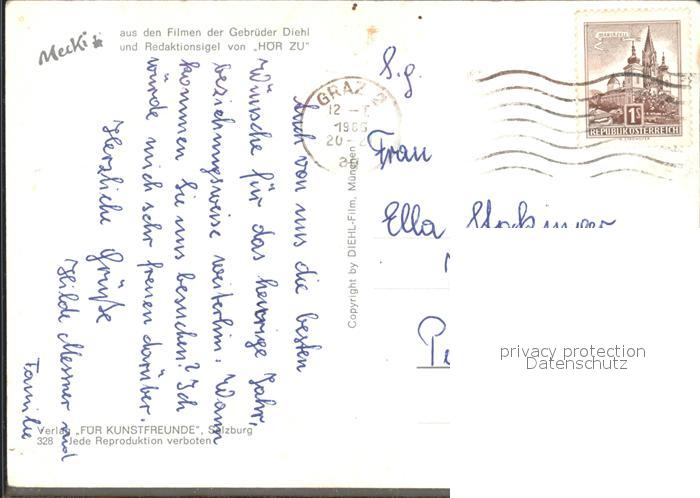 Mecki
aus den Filmen der Gebrüder Diehl
und Redaktionsigel von „HÖR ZU"
Auch von uns die besten
Wünsche für das heurige Jahr,
beziehungsweise weiterhin. Wann
kommen Sie uns besuchen? Ich
würde mich sehr freuen darüber.
Herzliche Grüße
Hilde Messner und
Familie
Verlag „FÜR KUNSTFREUNDE", Salzburg
328 Jede Reproduktion verboten
Copyright by DIEHL-Film, München
GRAZ 2
12
1966
20
MARIAZELL
1S
REPUBLIK ÖSTERREICH
S.g.
Frau
Ella
privacy protection
Datenschutz